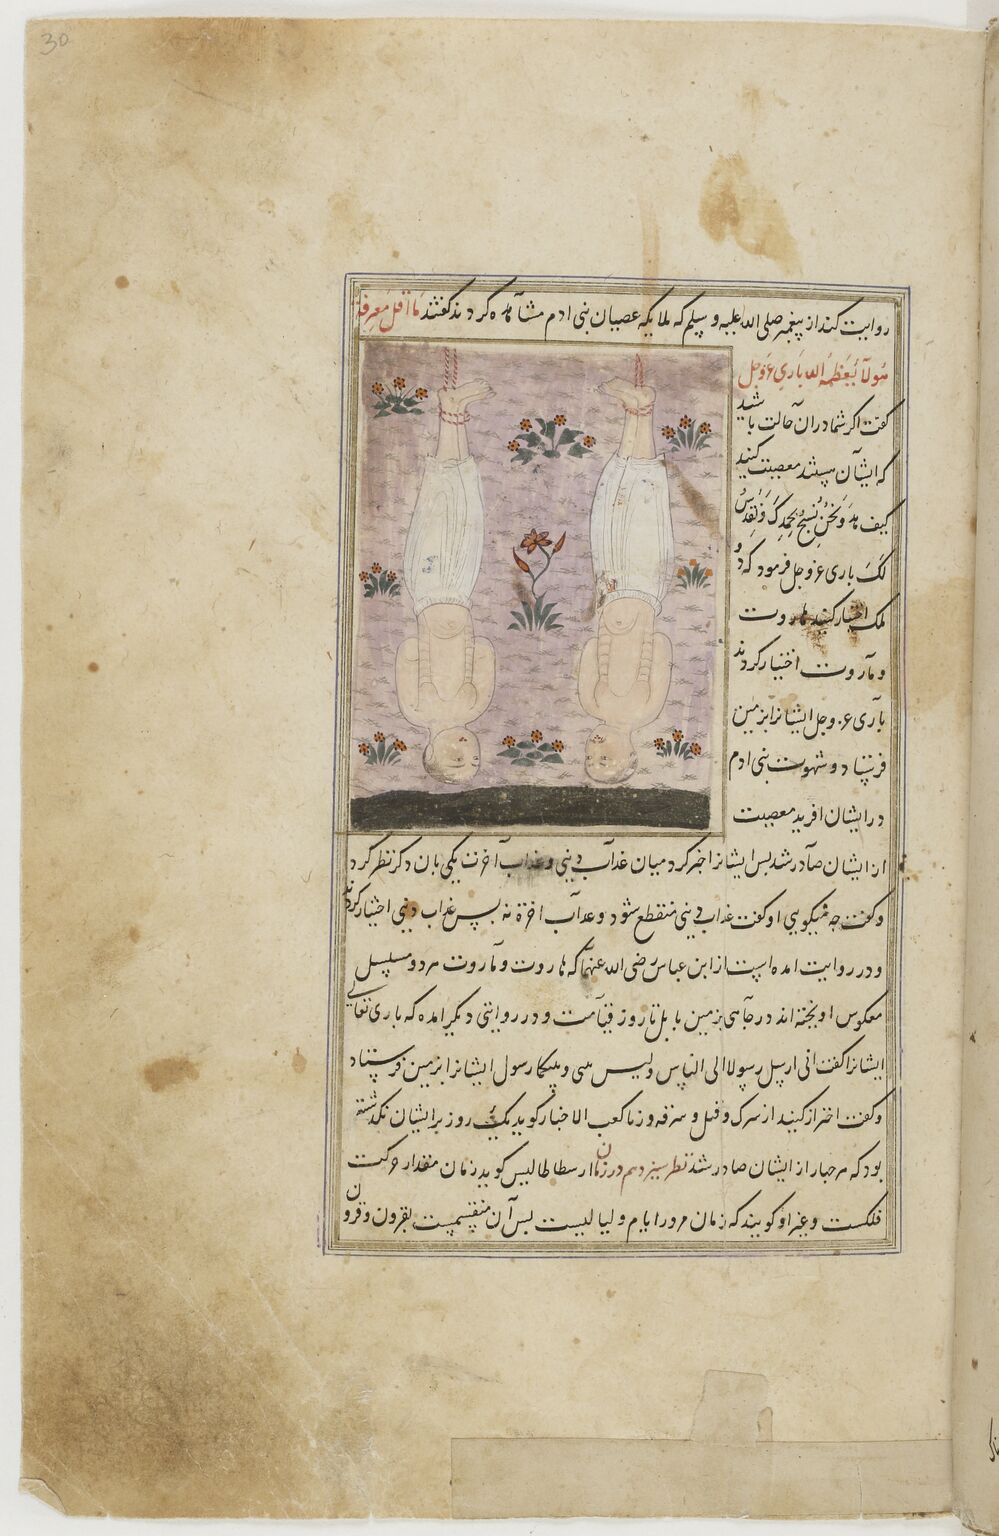 30
روایت کنند از پیغمبر صلی الله علیه و سلم که ملایکه عصیان بنی ادم مشاهده کردند گفتند ما اقل معرفة
هولآ بعظمة الله باری عز وجل
گفت اگر شما دران حالت باشید
که ایشان هستند معصیت کنید
کیف هذ ونحن نسبح بحمدک ونقدس
لک باری عز وجل فرمود که دو
ملک اختیار کنید هاروت
و ماروت اختیار کردند
باری عز وجل ایشانرا بزمین
فرستاد و شهوت بنی ادم
در ایشان افرید معصیت
از ایشان صادر شد بس ایشانرا خبر کرد میان عذاب دینی وعذاب آخرت یکی بان دکر نظر کرد
و گفت چه میکویی او گفت عذاب دینی منقطع شود و عذاب اخرة نه بس عذاب دینی اختیار کردند
و در روایت امده است از ابن عباس رضی الله عنهما که هاروت و ماروت هر دو مسلسل
معکوس اویخته اند در چاهی بزمین بابل تا روز قیآمت و در روایتی دیکر امده که باری تعالی
ایشانرا گفت انی ارسل رسولا الی الناس ولیس بینی وبینکما رسول ایشانرا بزمین فرستاد
و گفت احتراز کنید از شرک و قتل و سرقه و زنا کعب الاخبار کوید یک روز بر ایشان نکذشته
بود که هر چهار از ایشان صادر شد نظر سیزدهم در زمان ارسطاطالیس کوید زمان مقدار حرکت
فلکست و غیر او کویند که زمان مرور ایام و لیالیست بس آن منقسمست بقرون و قرون